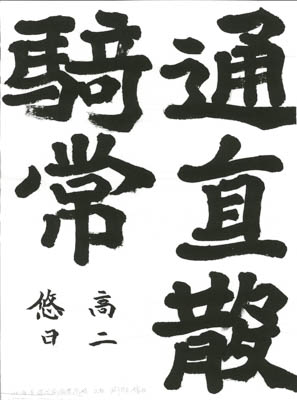 通直散
騎常
高二
悠日